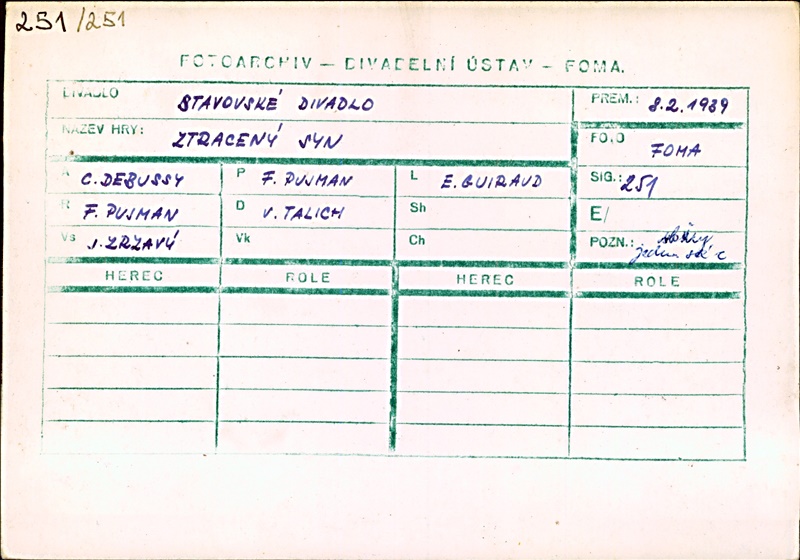 251/251
FOTOARCHIV — DIVADELNÍ ÚSTAV — FOMA.
DIVADLO STAVOVSKÉ DIVADLO PREM.: 8.2.1939
NÁZEV HRY: ZTRACENÝ SYN FOTO FOMA
A C. DEBUSSY P F. PUJMAN L E. GUIRAUD SIG.: 251
R F. PUJMAN D V. TALICH Sh E/
Vs J. ZRZAVÝ Vk Ch POZN.:
HEREC ROLE HEREC ROLE